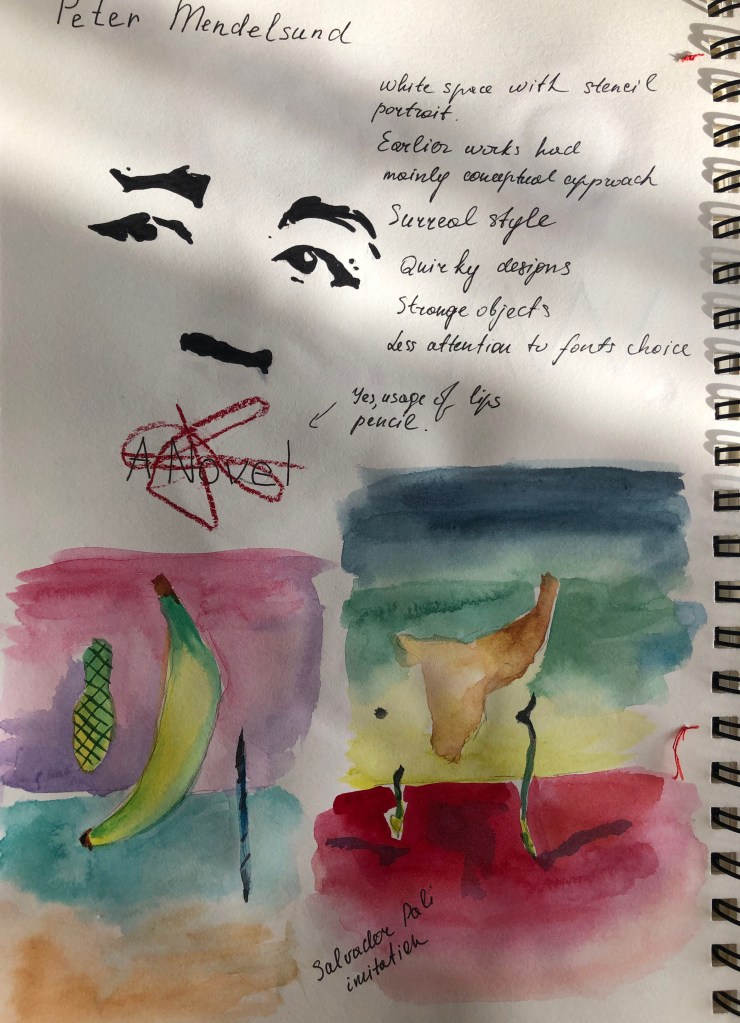 Peter Mendelsund
white space with stencil
portrait.
Earlier works had
mainly conceptual approach
Surreal style
Quirky designs
Strange objects
Less attention to fonts choice
Yes, usage of lips
pencil.
A Novel
Salvador Dali
imitation